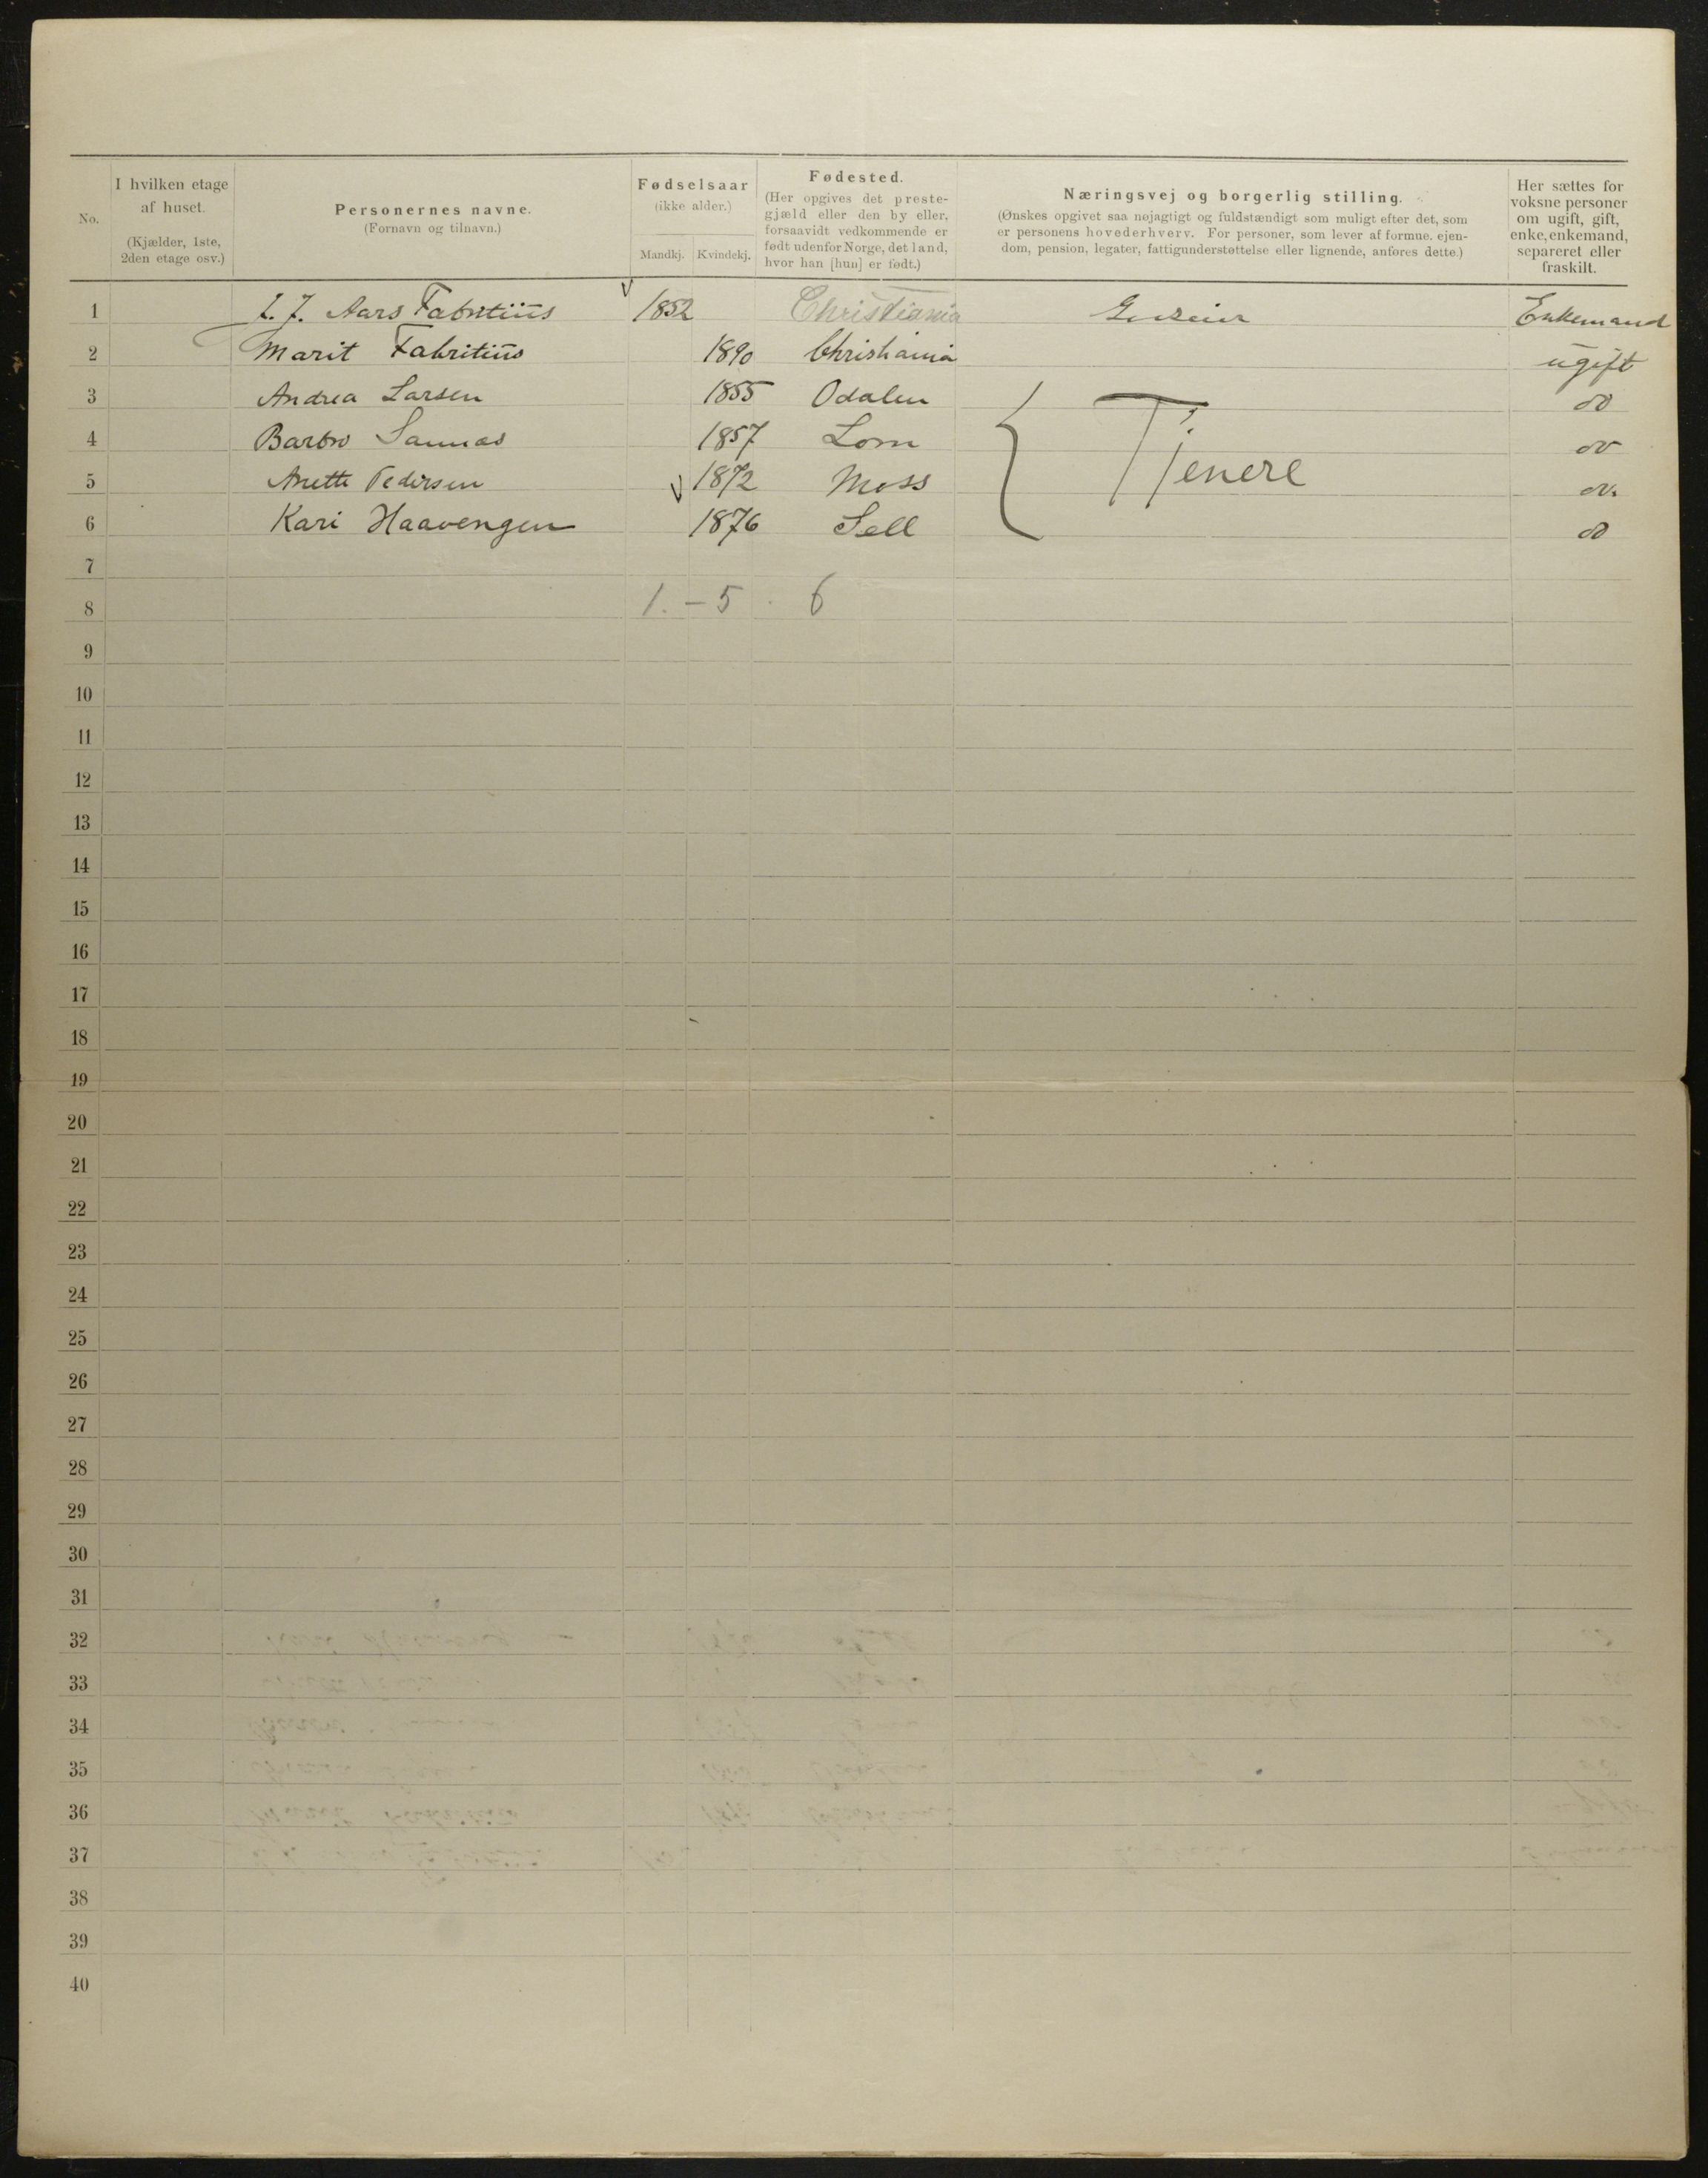 No.
I hvilken etage af huset.
(Kjælder, 1ste, 2den etage osv.)
Personernes navne.
(Fornavn og tilnavn.)
Fødselsaar
(ikke alder.)
Mandkj. Kvindekj.
Fødested.
(Her opgives det preste-
gjæld eller den by eller,
forsaavidt vedkommende er
født udenfor Norge, det land,
hvor han [hun] er født.)
Næringsvej og borgerlig stilling.
(Ønskes opgivet saa nøjagtigt og fuldstændigt som muligt efter det, som
er personens hovederhverv. For personer, som lever af formue, ejen-
dom, pension, legater, fattigunderstøttelse eller lignende, anføres dette.)
Her sættes for
voksne personer
om ugift, gift,
enke, enkemand,
separeret eller
fraskilt.
1 Aars Fabritius 1852 Christiania Enkemand
2 Marit Fabritius 1890 Christiania ugift
3 Andrea Larsen 1855 Odalen do
4 Barbro 1857 Lom do
Tjenere
5 Anette Pedersen 1872 Moss do.
6 Kari Haavengen 1876 Sell do
7
8 1. – 5 . 6
9
10
11
12
13
14
15
16
17
18
19
20
21
22
23
24
25
26
27
28
29
30
31
32
33
34
35
36
37
38
39
40